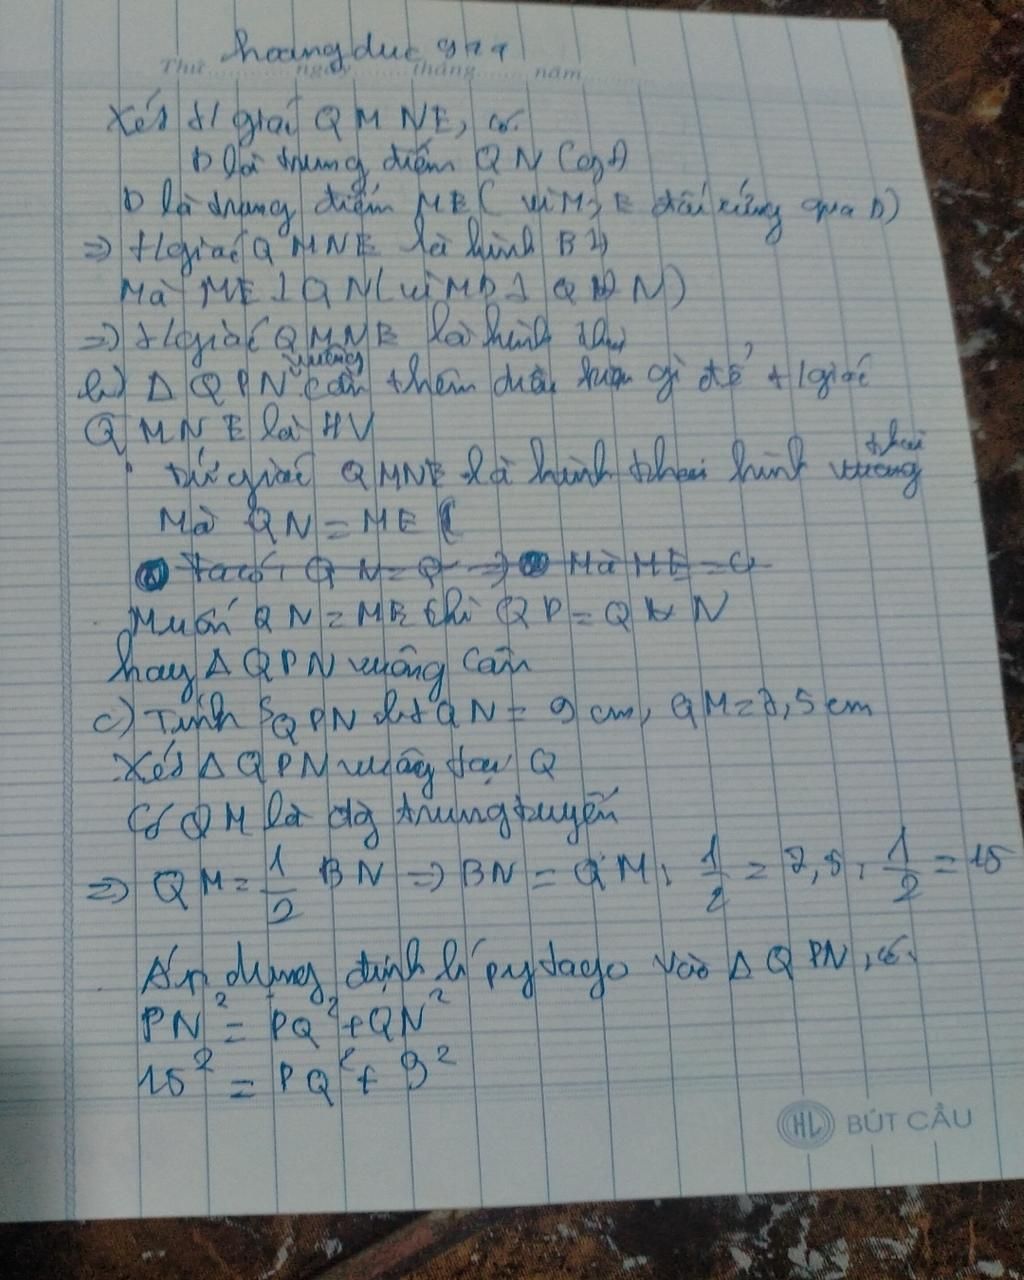 hoangduc
Thứ ngày tháng năm
Xét t/giác QMNE, có:
D là trung điểm QN (cgt)
D là trung điểm ME ( vì M, E đối xứng qua D)
=> t/giác QMNE là hình B H
Mà ME ⊥ QN (vì MD ⊥ Q N)
=> t/giác QMNE là hình thoi
b) Δ QPN vuông cần thêm điều kiện gì để t/giác
QMNE là HV
Tứ giác QMNE là hình thoi hình vuông thoi
Mà QN = ME (
ta có: Q N = Q => Mà ME =
Muốn QN = ME thì QP = Q N
hay Δ QPN vuông cân
c) Tính S QPN biết QN = 9 cm, QM = 7,5 cm
Xét Δ QPN vuông tại Q
Có QM là đg trung tuyến
=> QM = 1/2 BN => BN = QM : 1/2 = 7,5 : 1/2 = 15
Áp dụng định lí pytago vào Δ QPN, có:
PN² = PQ² + QN²
15² = PQ² + 9²
HL BÚT CẦU